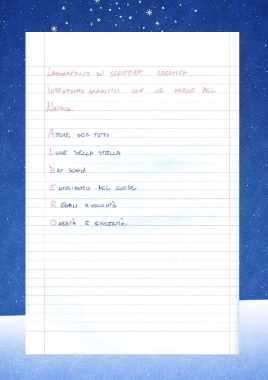 LABORATORIO DI SCRITTURA CREATIVA
INVENTIAMO ACROSTICI CON LE PAROLE DEL
NATALE
AMORE PER TUTTI
LUCE DELLA STELLA
BEI SOGNI
ENTUSIASMO NEL CUORE
REGALI A VOLONTÀ
ONESTÀ E SINCERITÀ